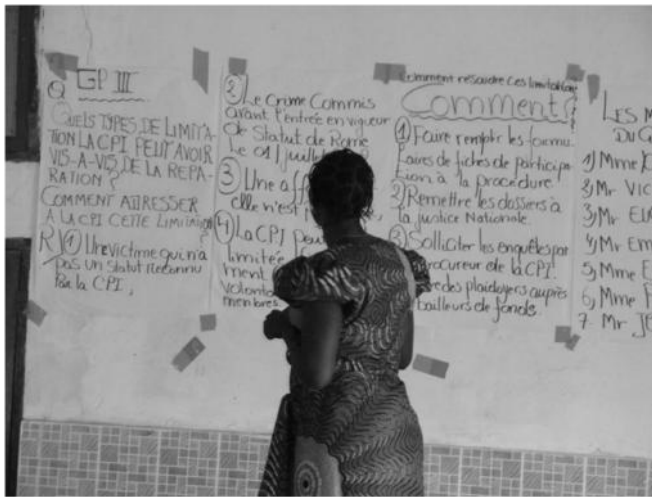 Q GP III
QUELS TYPES DE LIMITA-
TION LA CPI PEUT AVOIR
VIS-A-VIS DE LA REPA-
RATION ?
COMMENT ADRESSER
A LA CPI CETTE LIMITATION
R) ① Une victime qui n'a
pas un statut reconnu
Par la CPI,
② Le Crime Commis
avant l'entrée en vigueur
de Statut de Rome
Le 01/juillet
③ Une
elle n'est
④ La CPI
limitée
ment
volonta
membres
Comment résoudre ces limitations
Comment ?
① Faire remplir les formu-
laires de fiches de participa-
tion à la procédure
② Remettre les dossiers à
la justice Nationale.
③ Solliciter les enquêtes par
procureur de la CPI.
des plaidoyers auprès
bailleurs de fonds.
LES M
DU G
1) Mme
2) Mr VIC
3) Mr
4) Mr Em
5) Mme E
6) Mme
7- Mr